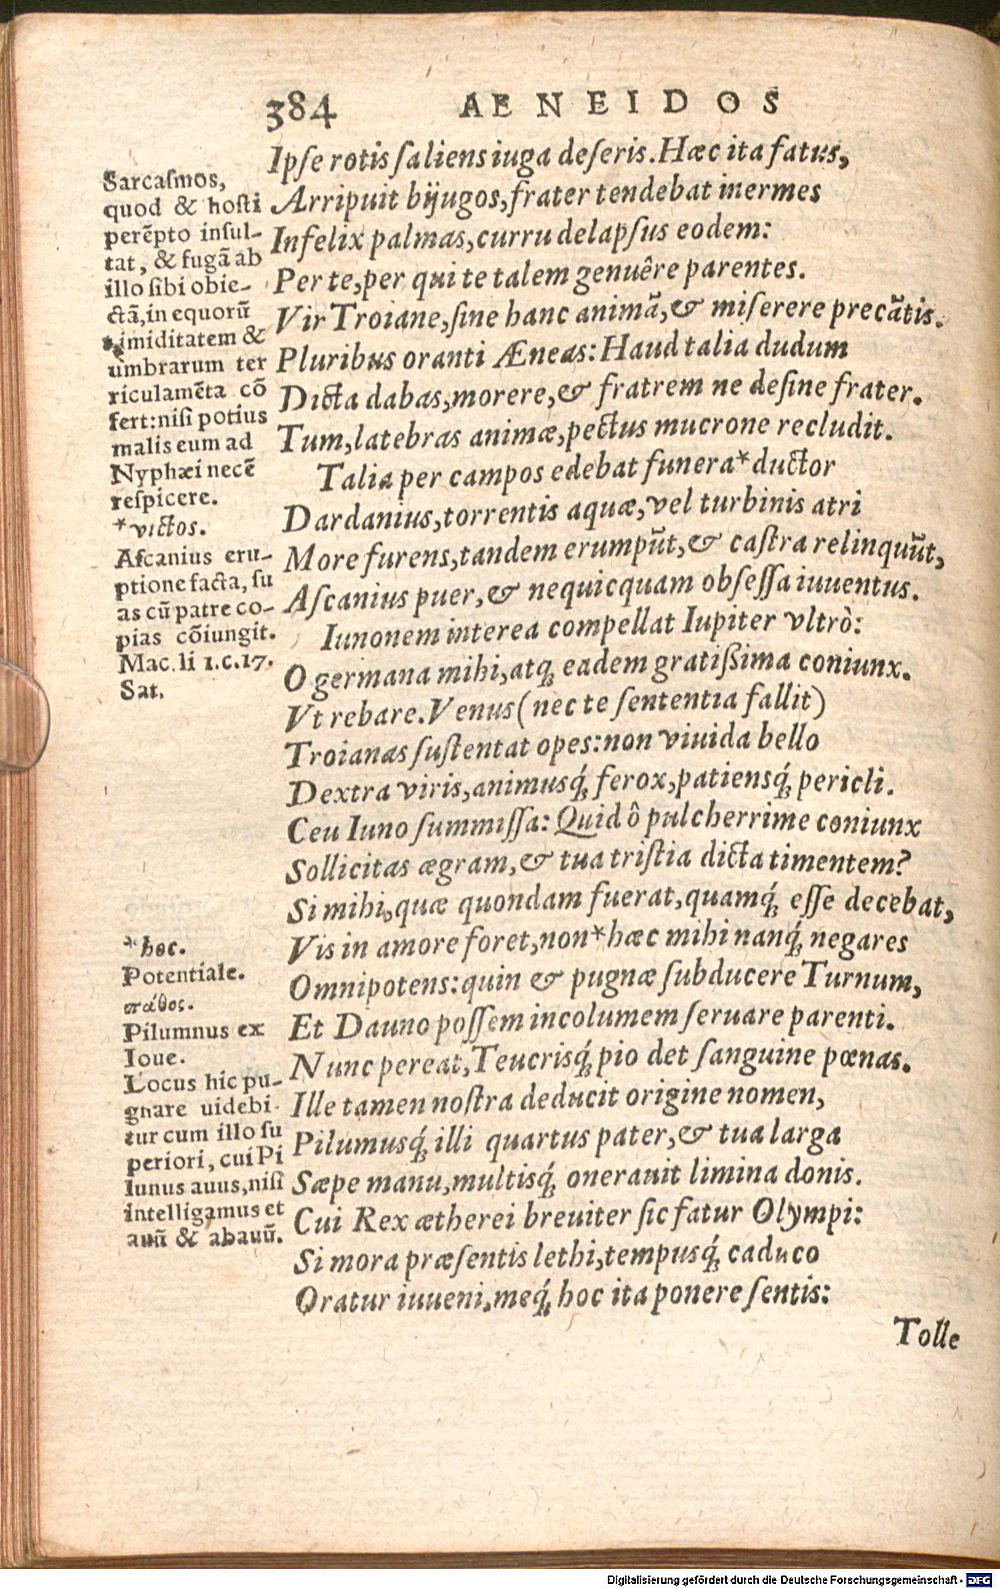 384 AENEIDOS
Ipse rotis saliens iuga deseris. Hæc ita fatus,
Arripuit bijugos, frater tendebat inermes
Infelix palmas, curru delapsus eodem:
Per te, per qui te talem genuêre parentes.
Vir Troiane, sine hanc animã, & miserere precãtis.
Pluribus oranti Æneas: Haud talia dudum
Dicta dabas, morere, & fratrem ne desine frater.
Tum, latebras animæ, pectus mucrone recludit.
Talia per campos edebat funera * ductor
Dardanius, torrentis aquæ, vel turbinis atri
More furens, tandem erumpũt, & castra relinquũt,
Ascanius puer, & nequicquam obsessa iuuentus.
Iunonem interea compellat Iupiter vltrò:
O germana mihi, atq; eadem gratissima coniunx.
Vt rebare. Venus (nec te sententia fallit)
Troianas sustentat opes: non viuida bello
Dextra viris, animusq́; ferox, patiensq́; pericli.
Ceu Iuno summissa: Quid ô pulcherrime coniunx
Sollicitas ægram, & tua tristia dicta timentem?
Si mihi, quæ quondam fuerat, quamq́; esse decebat,
Vis in amore foret, non * hæc mihi nanq́; negares
Omnipotens: quin & pugnæ subducere Turnum,
Et Dauno possem incolumem seruare parenti.
Nunc pereat, Teucrisq́; pio det sanguine pœnas.
Ille tamen nostra deducit origine nomen,
Pilumusq́; illi quartus pater, & tua larga
Sæpe manu, multisq́; onerauit limina donis.
Cui Rex ætherei breuiter sic fatur Olympi:
Si mora præsentis lethi, tempusq́; caduco
Oratur iuueni, meq́; hoc ita ponere sentis:
Tolle
Sarcasmos,
quod & hosti
perẽpto insul-
tat, & fugã ab
illo sibi obie-
ctã, in equorũ
timiditatem &
umbrarum ter
riculamẽta cõ
fert: nisi potius
malis eum ad
Nyphæi necẽ
respicere.
* victos.
Ascanius eru-
ptione facta, su
as cũ patre co-
pias cõiungit.
Mac. li 1. c. 17.
Sat.
* hoc.
Potentiale.
πάθος.
Pilumnus ex
Ioue.
Locus hic pu-
gnare uidebi-
tur cum illo su
periori, cui Pi
lunus auus, nisi
intelligamus et
auũ & abauũ.
Digitalisierung gefördert durch die Deutsche Forschungsgemeinschaft - DFG